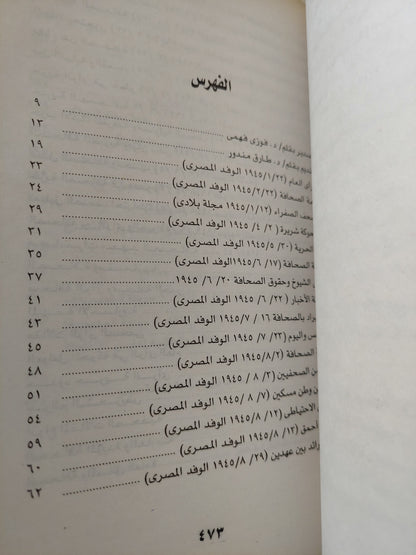 الفهرس
بقلم/ د. فوزى فهمى ٩
بقلم/ د. طارق مندور ١٣
العام (١٩٤٥/١/٢٢ الوفد المصرى) ١٩
الصحافة (١٩٤٥/٢/٢٢ الوفد المصرى) ٢٣
الصفراء (١٩٤٥/١/١٢ مجلة بلادى) ٢٤
شريرة (٢ /٤ /١٩٤٥ الوفد المصرى) ٢٩
الحرية (٢٠ /١٩٤٥/٥ الوفد المصرى) ٣١
الصحافة (١٩٤٥/٦/١٧الوفد المصرى) ٣٥
الشيوخ وحقوق الصحافة ٢٠ /٦ /١٩٤٥ ٣٧
الأخبار (٢٢ /٦ /١٩٤٥ الوفد المصرى) ٤١
بالصحافة ١٦ /٧ /١٩٤٥ الوفد المصرى) ٤٣
واليوم (٢٣ /٧ /١٩٤٥ الوفد المصرى) ٤٥
الصحافة (١٩٤٥/٨/٢ الوفد المصرى) ٤٨
الصحفيين (٣ /٨ /١٩٤٥ الوفد المصرى) ٥١
وطن مسكين (٧ /٨ /١٩٤٥ الوفد المصرى) ٥٤
الاحتياطى (١٢ /٨ /١٩٤٥ الوفد المصرى) ٥٩
أحمق (١٣ /٨ /١٩٤٥ الوفد المصرى) ٦٠
بين عهدين (٢٩ /١٩٤٥/٨ الوفد المصرى) ٦٢
٤٧٣